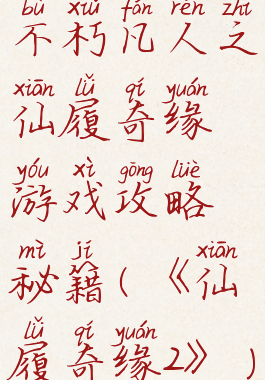 bù xiǔ fán rén zhī
不朽凡人之
xiān lǚ qí yuán
仙履奇缘
yóu xì gōng lüè
游戏攻略
mì jí xiān
秘籍(《仙
lǚ qí yuán
履奇缘2》)